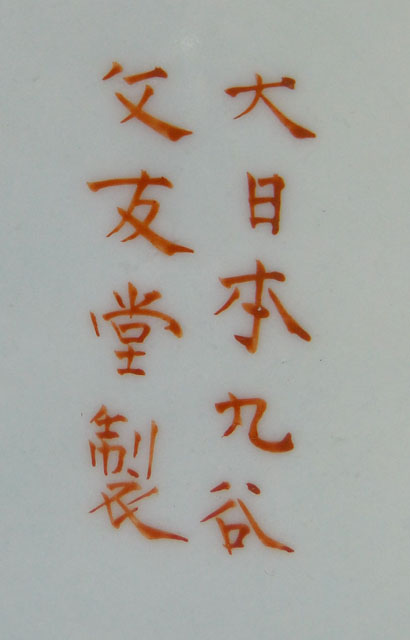 大日本九谷
文友堂製